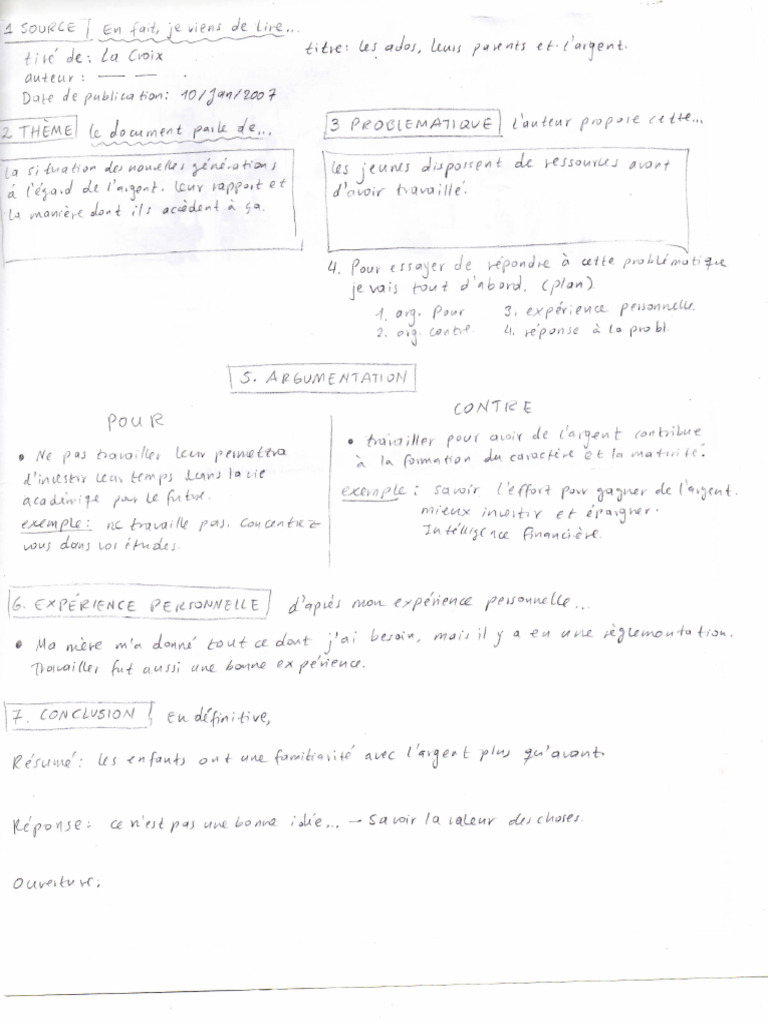 1 SOURCE | En fait, je viens de lire...
titre: les ados, leurs parents et l'argent.
tiré de: La Croix
auteur: — —
Date de publication: 10/Jan/2007
2 THÈME | le document parle de...
La situation des nouvelles générations
à l'égard de l'argent. Leur rapport et
la manière dont ils accèdent à ça.
3 PROBLEMATIQUE | l'auteur propose cette...
les jeunes disposent de ressources avant
d'avoir travaillé.
4. Pour essayer de répondre à cette problématique
je vais tout d'abord. (plan)
1. arg. Pour 3. expérience personnelle.
2. arg. contre 4. réponse à la probl.
5. ARGUMENTATION
POUR
• Ne pas travailler leur permettra
d'investir leur temps dans la vie
académiqe pour le futur.
exemple: ne travaille pas. Concentrez
vous dans vos études.
CONTRE
• travailler pour avoir de l'argent contribue
à la formation du caractère et la maturité.
exemple: savoir l'effort pour gagner de l'argent.
mieux investir et épargner.
Intélligence Financière.
6. EXPÉRIENCE PERSONNELLE | d'après mon expérience personnelle...
• Ma mère m'a donné tout ce dont j'ai besoin, mais il y a eu une règlemontation.
Travailler fut aussi une bonne expérience.
7. CONCLUSION | En définitive,
Résumé: les enfants ont une familiarité avec l'argent plus qu'avant.
Réponse: ce n'est pas une bonne idée... — Savoir la valeur des choses.
Ouverture: